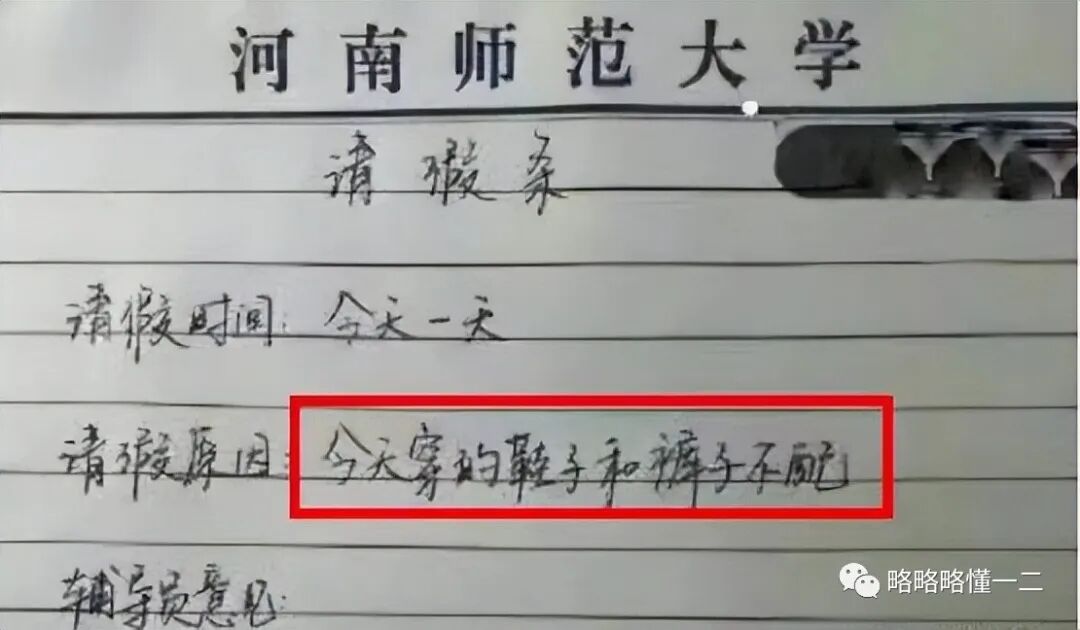 河南师范大学
请假条
请假时间：今天一天
请假原因：今天穿的鞋子和裤子不配
辅导员意见：
略略略懂一二